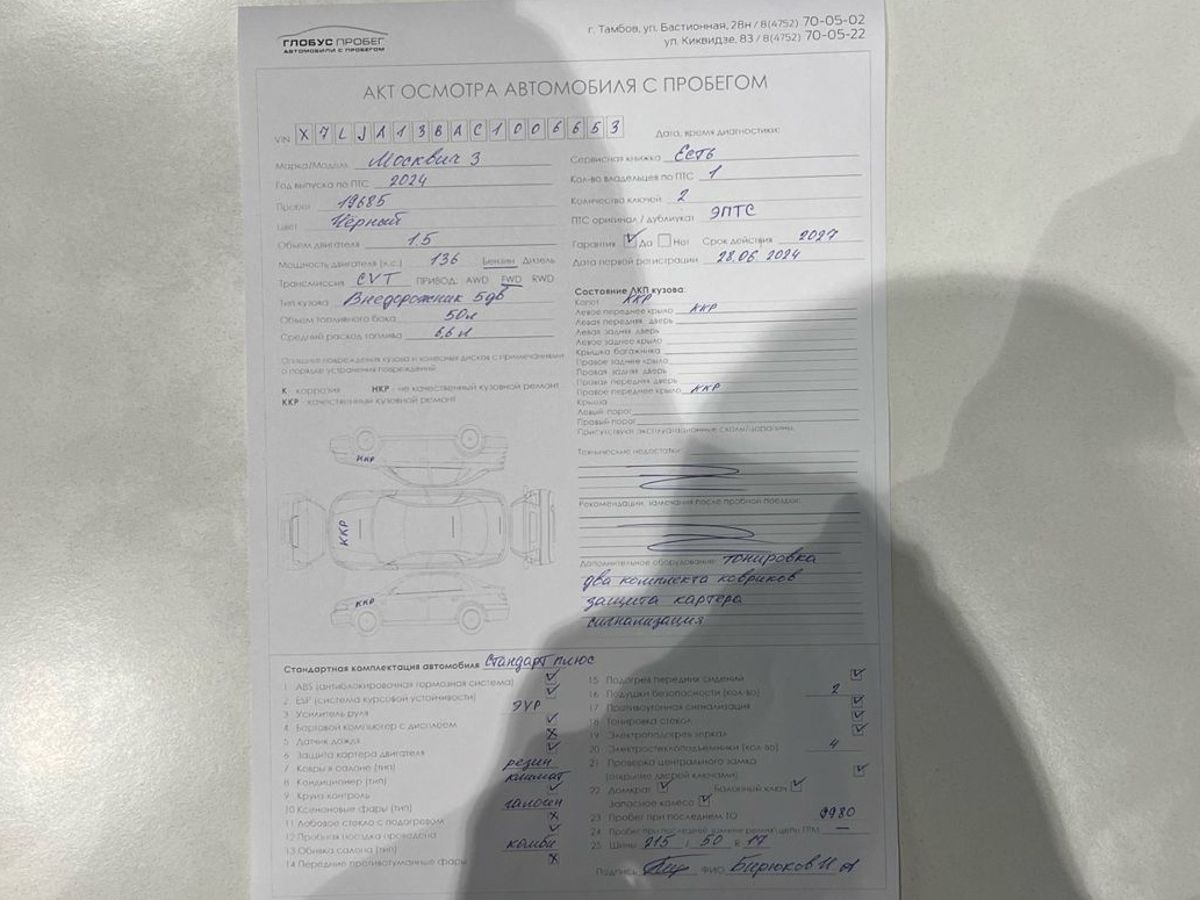 ГЛОБУС ПРОБЕГ
АВТОМОБИЛИ С ПРОБЕГОМ
г. Тамбов, ул. Бастионная, 28н / 8(4752) 70-05-02
ул. Киквидзе, 83 / 8(4752) 70-05-22
АКТ ОСМОТРА АВТОМОБИЛЯ С ПРОБЕГОМ
VIN X7LJA13BAC1006653
Дата, время диагностики:
Марка/Модель Москвич 3
Год выпуска по ПТС 2024
Пробег 19685
Цвет Чёрный
Объем двигателя 1.5
Мощность двигателя (л.с.) 136 Бензин Дизель
Трансмиссия CVT ПРИВОД: AWD FWD RWD
Тип кузова Внедорожник 5дв
Объем топливного бака 50л
Средний расход топлива 6,6 л
Опишите повреждения кузова и колесных дисков с примечаниями
о порядке устранения повреждений
К - коррозия НКР - не качественный кузовной ремонт
ККР - качественный кузовной ремонт
ККР
ККР
ККР
Сервисная книжка Есть
Кол-во владельцев по ПТС 1
Количество ключей 2
ПТС оригинал / дубликат ЭПТС
Гарантия Да Нет Срок действия 2027
Дата первой регистрации 28.06.2024
Состояние ЛКП кузова:
Капот ККР
Левое переднее крыло ККР
Левая передняя дверь
Левая задняя дверь
Левое заднее крыло
Крышка багажника
Правое заднее крыло
Правая задняя дверь
Правая передняя дверь
Правое переднее крыло ККР
Крыша
Левый порог
Правый порог
Присутствуют эксплуатационные сколы/царапины.
Технические недостатки:
Рекомендации, замечания после пробной поездки:
Дополнительное оборудование: тонировка
два комплекта ковриков
защита картера
сигнализация
Стандартная комплектация автомобиля Стандарт плюс
1 ABS (антиблокировочная тормозная система)
2 ESP (система курсовой устойчивости)
3 Усилитель руля ЭУР
4 Бортовой компьютер с дисплеем
5 Датчик дождя
6 Защита картера двигателя
7 Ковры в салоне (тип) резин
8 Кондиционер (тип) климат
9 Круиз контроль
10 Ксеноновые фары (тип) галоген
11 Лобовое стекло с подогревом
12 Пробная поездка проведена
13 Обивка салона (тип) комби
14 Передние противотуманные фары
15 Подогрев передних сидений
16 Подушки безопасности (кол-во) 2
17 Противоугонная сигнализация
18 Тонировка стекол
19 Электроподогрев зеркал
20 Электростеклоподъемники (кол-во) 4
21 Проверка центрального замка
(открытие дверей ключами)
22 Домкрат Балонный ключ
Запасное колесо
23 Пробег при последнем ТО 9980
24 Пробег при последней замене ремня/цепи ГРМ —
25 Шины 215 / 50 R 17
Подпись ФИО Бирюков И А